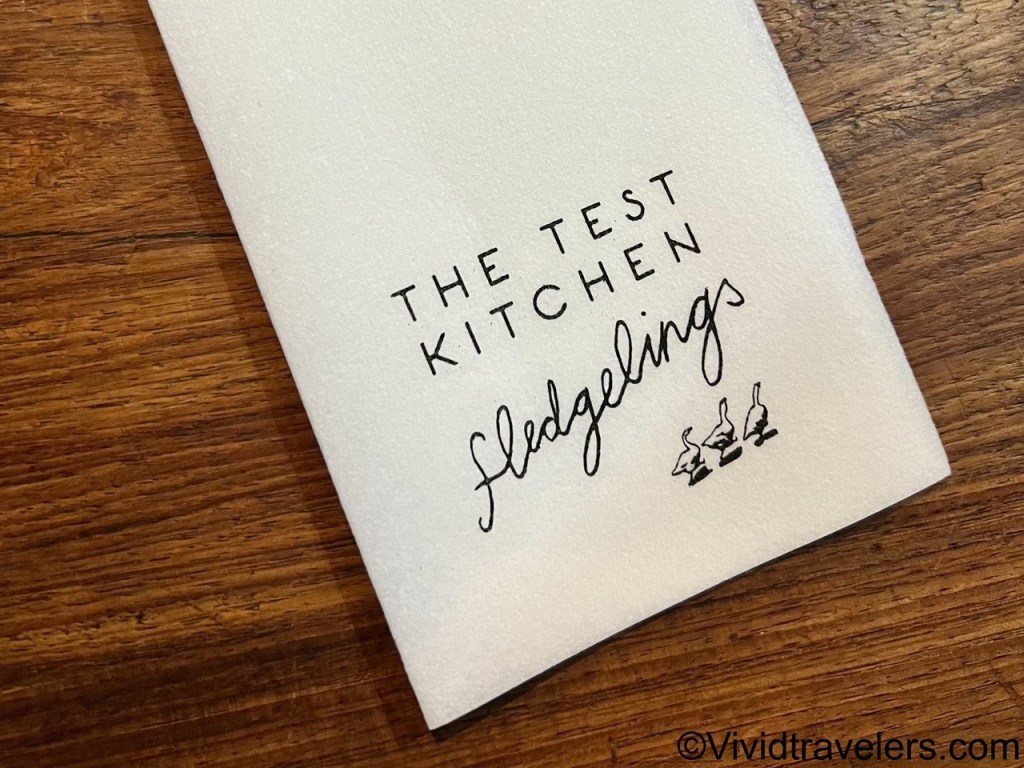 THE TEST
KITCHEN
fledgelings
©Vividtravelers.com